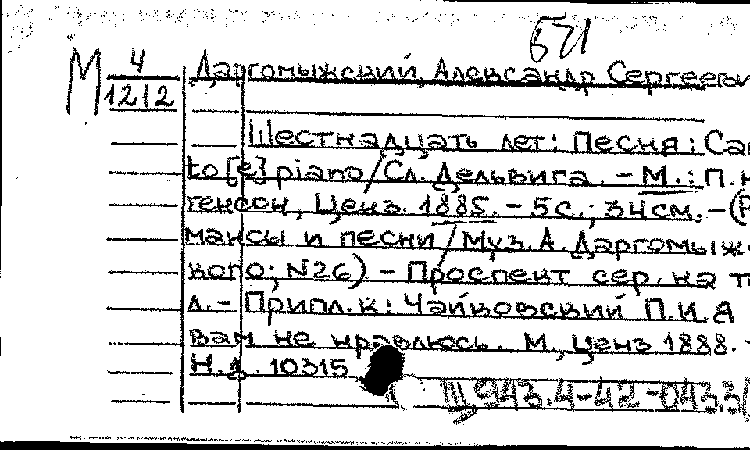 571
М 4
1212
Даргомыжский, Александр Сергеевич
Шестнадцать лет: Песня: Сап
to [e] piano / Сл. Дельвига. – М.: П.
генсон, Ценз. 1885. – 5 с.; 34 см. – (Р
мансы и песни / Муз. А. Даргомыж-
кого; N26) – Проспект сер. на т
л. – Припл. к: Чайковский П.И. Я
вам не нравлюсь. М., Ценз 1888. –
Н.д. 10315
III 943.4-42-043.3(